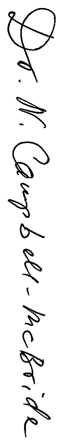 Dr. N. Campbell-McBride